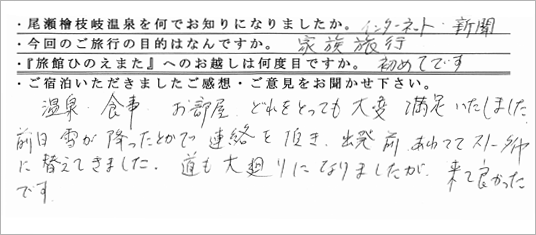 ・尾瀬檜枝岐温泉を何でお知りになりましたか。インターネット・新聞
・今回のご旅行の目的はなんですか。家族旅行
・『旅館ひのえまた』へのお越しは何度目ですか。初めてです
・ご宿泊いただきましたご感想・ご意見をお聞かせ下さい。
温泉・食事・お部屋、どれをとっても大変満足いたしました。
前日雪が降ったとかで連絡を頂き、出発前あわててスノータイヤ
に替えてきました。道も大廻りになりましたが、来て良かった
です。